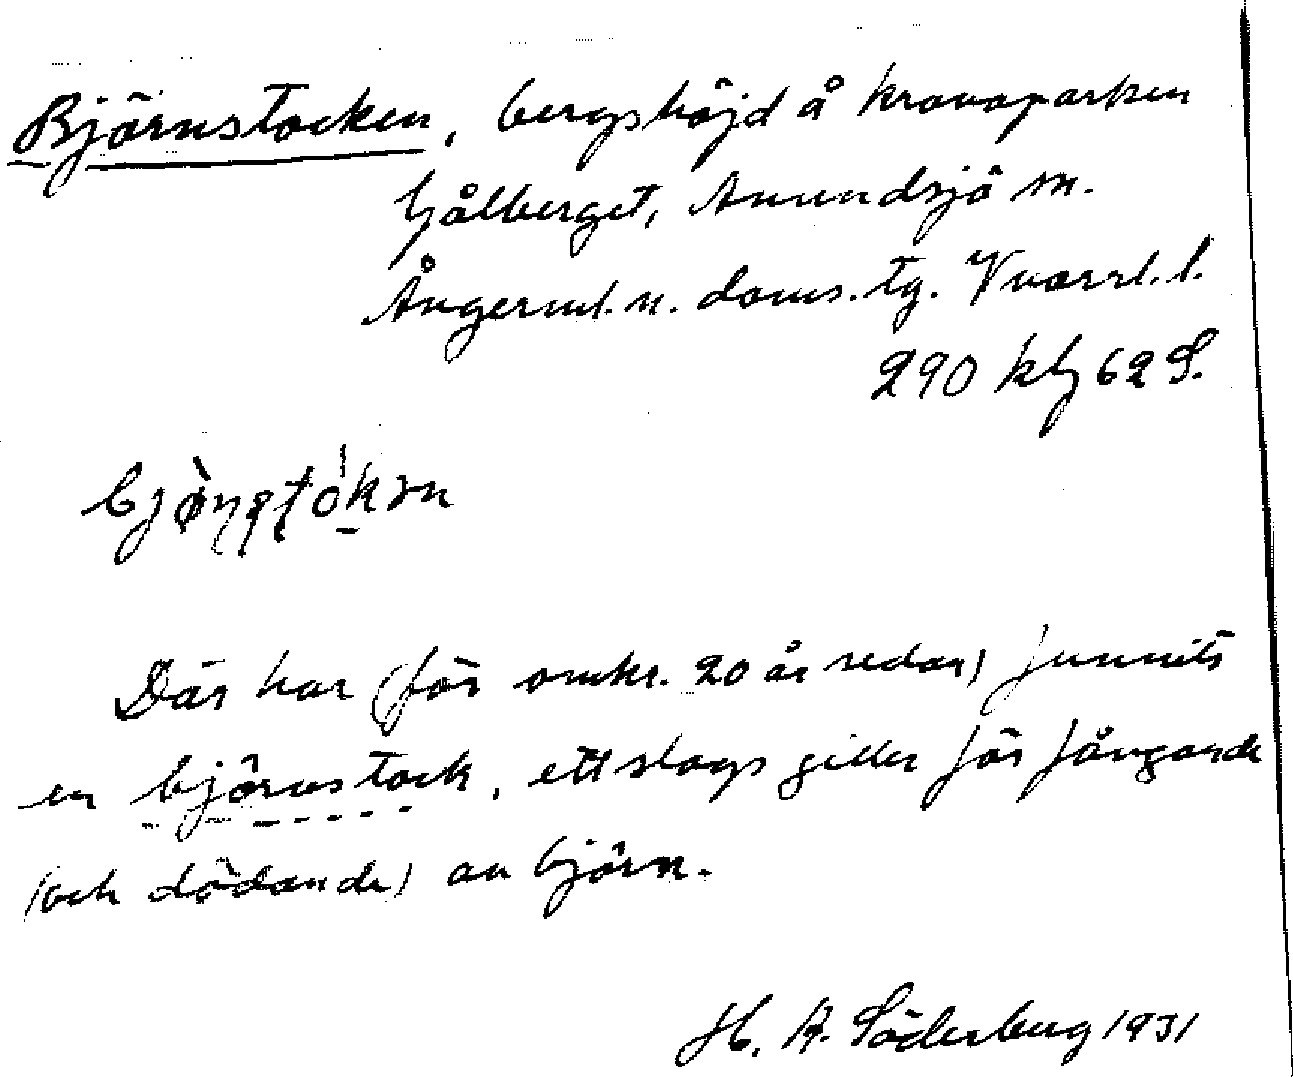 Björnstocken, bergshöjd å kronoparken
Gålberget, Anundsjö sn.
Ångerml. n. doms. tg. Vnorrl. l.
290 kbj 62 S.
Där har (för omkr. 20 år sedan) funnits
en björnstock, ett slags giller för fångande
(och dödande) av björn.
H. A. Söderberg 1931